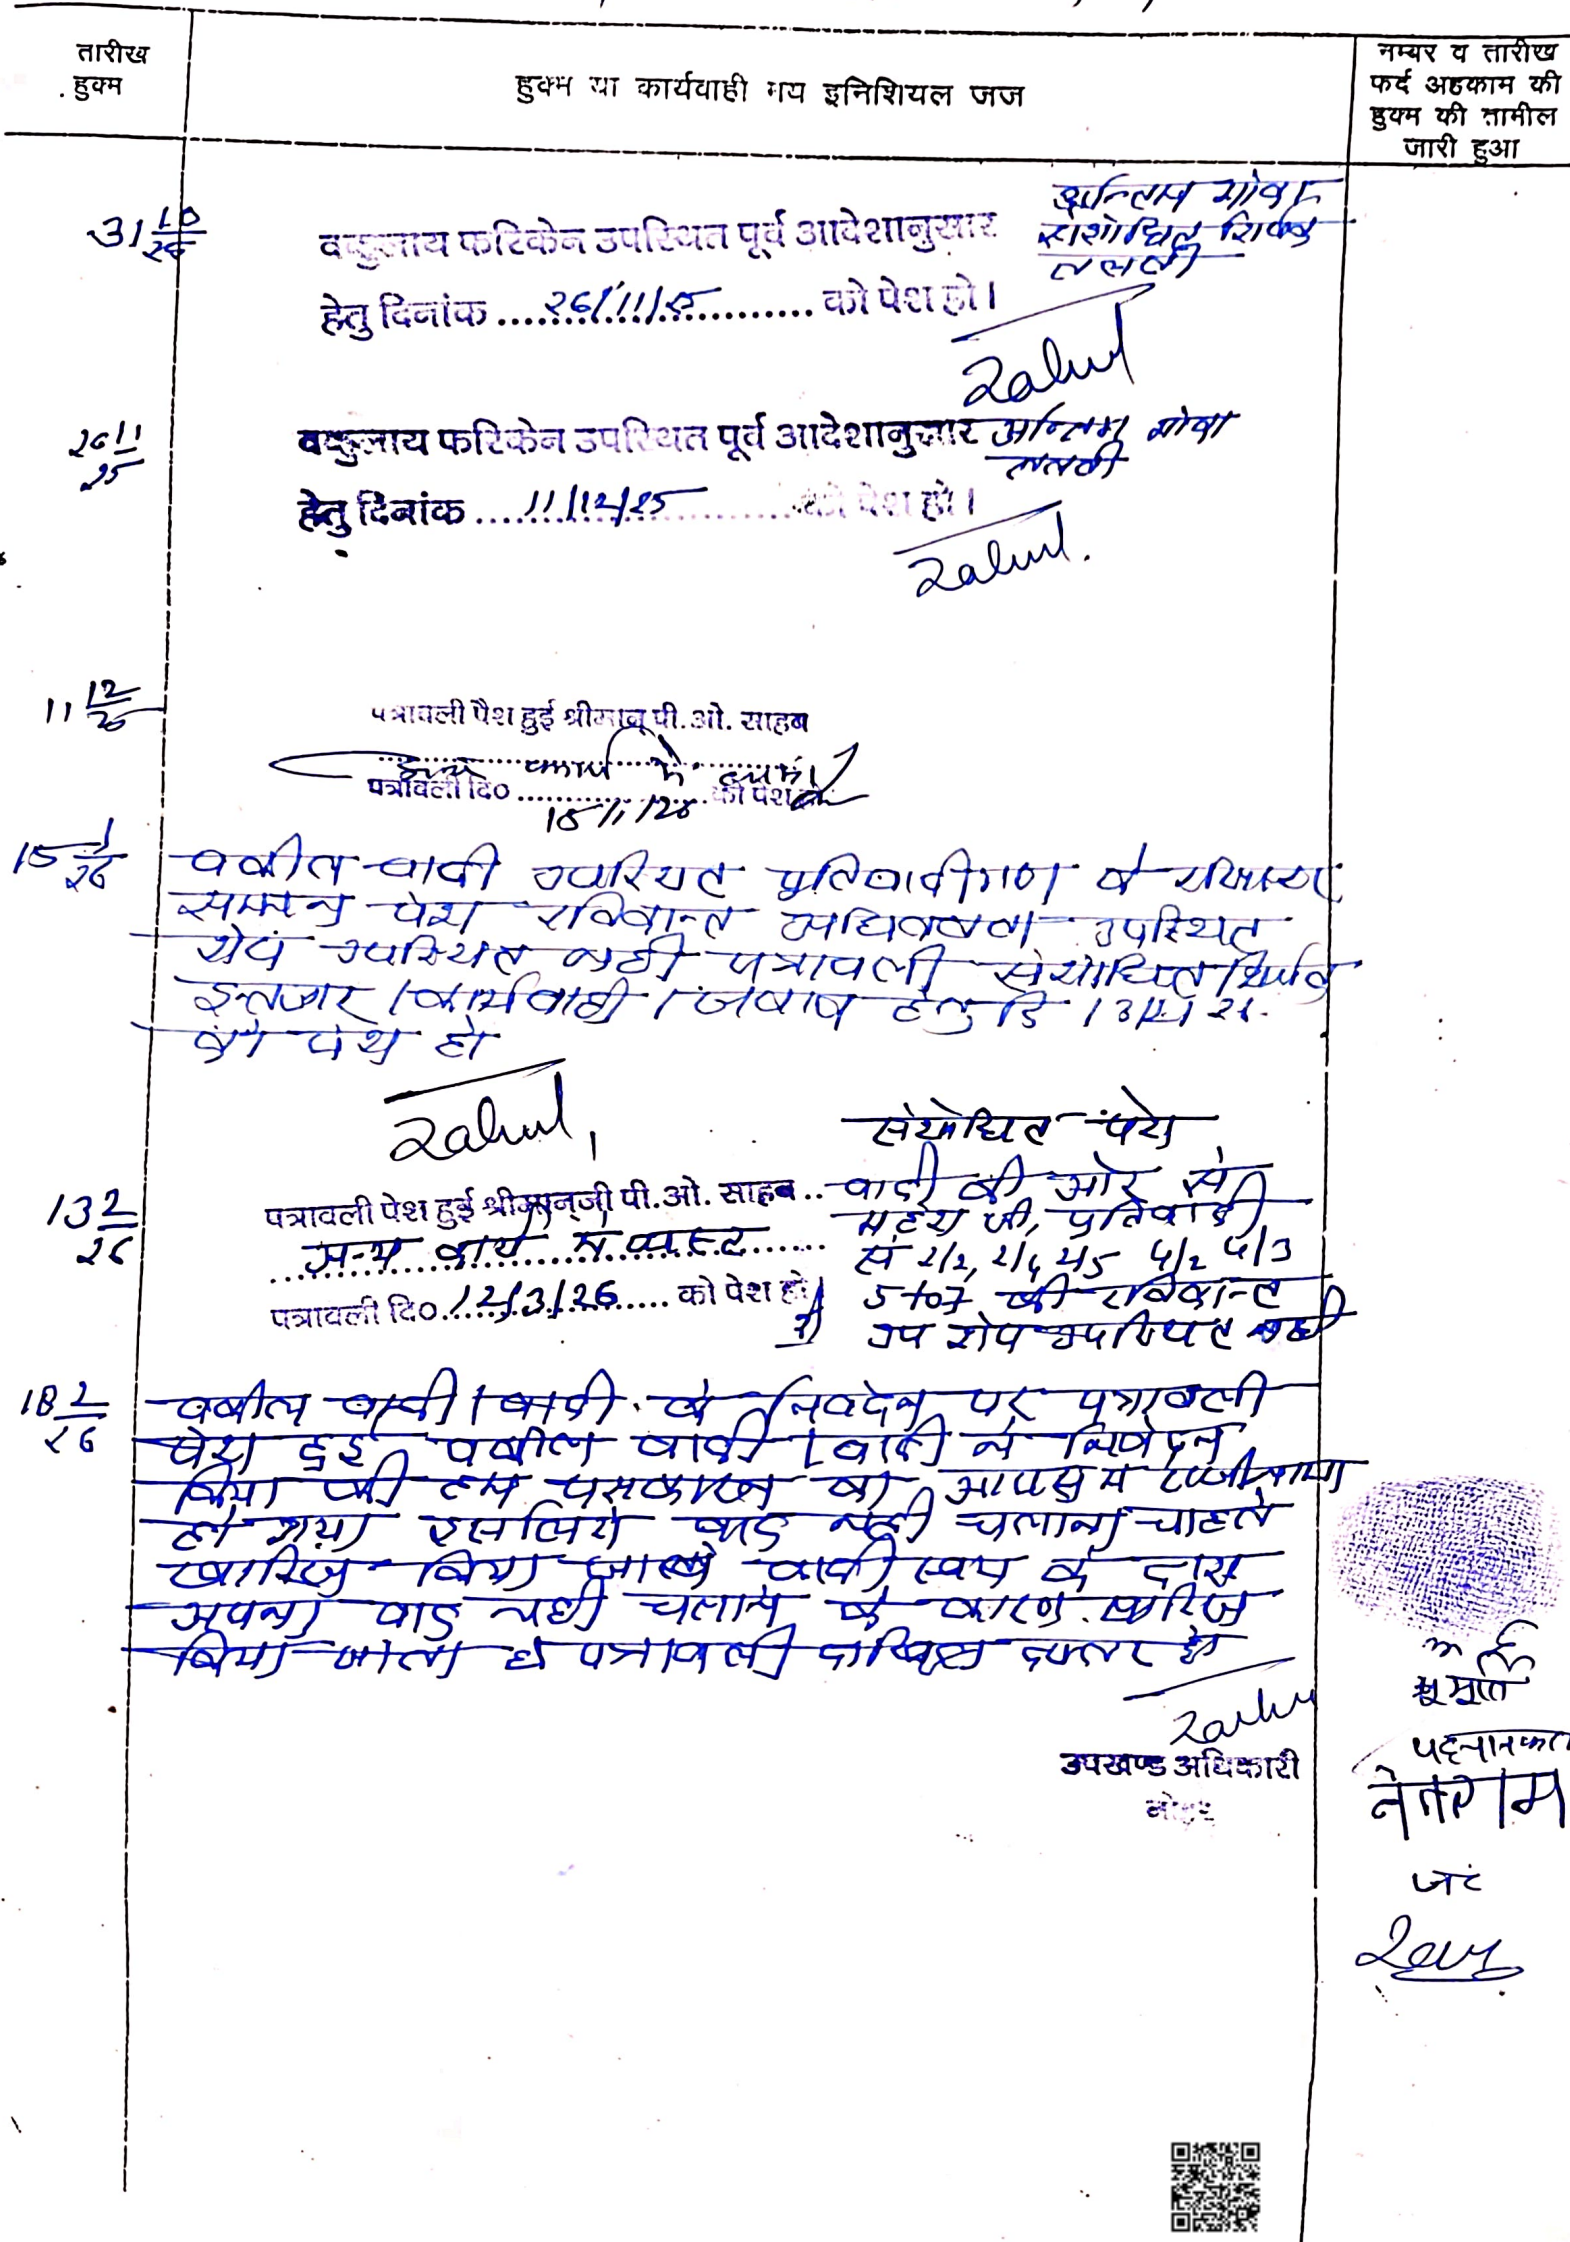 तारीख
हुक्म
हुक्म या कार्यवाही मय इनिशियल जज
नम्बर व तारीख
फर्द अहकाम की
हुक्म की तामील
जारी हुआ
31 10/25
वकुलाय फरिकेन उपस्थित पूर्व आदेशानुसार
संशोधित
तलबी
हेतु दिनांक 26/11/25 को पेश हो।
Rahul
26 11/25
वकुलाय फरिकेन उपस्थित पूर्व आदेशानुसार अन्तिम मोका
तलबी
हेतु दिनांक 11/12/25 को पेश हो।
Rahul
11 12/25
पत्रावली पेश हुई श्रीमान् पी.ओ. साहब
अन्य कार्य में व्यस्त
पत्रावली दि० 15/1/26 को पेश हो
15 1/26
वकील वादी उपस्थित प्रतिवादीगण के
सम्मन पेश रविकान्त अधिवक्ता उपस्थित
शेष उपस्थित नही पत्रावली संशोधित
इन्तजार / कार्यवाही / जबाब हेतु दि 13/2/26
को पेश हो
Rahul
संशोधित पेश
13 2/26
पत्रावली पेश हुई श्रीमान्जी पी.ओ. साहब
अन्य कार्य में व्यस्त
पत्रावली दि० 12/3/26 को पेश हो
वादी की ओर से
महेश जी, प्रतिवादी
सं 2/2, 2/4 2/5 4/2 4/3
5 to 7 की रविकान्त
उप शेष उपस्थित नही
18 2/26
वकील वादी / वादी के निवेदन पर पत्रावली
पेश हुई वकील वादी / वादी ने निवेदन
किया की हम पक्षकारान का आपस में राजीनामा
हो गया इसलिये वाद नही चलाना चाहते
खारिज किया जावे वादी स्वयं के द्वारा
अपना वाद नही चलाने के कारण खारिज
किया जाता है पत्रावली दाखिल दफ्तर हो
Rahul
उपखण्ड अधिकारी
नोहर
मूर्ति
पहचानकर्ता
नेतराम
जाट